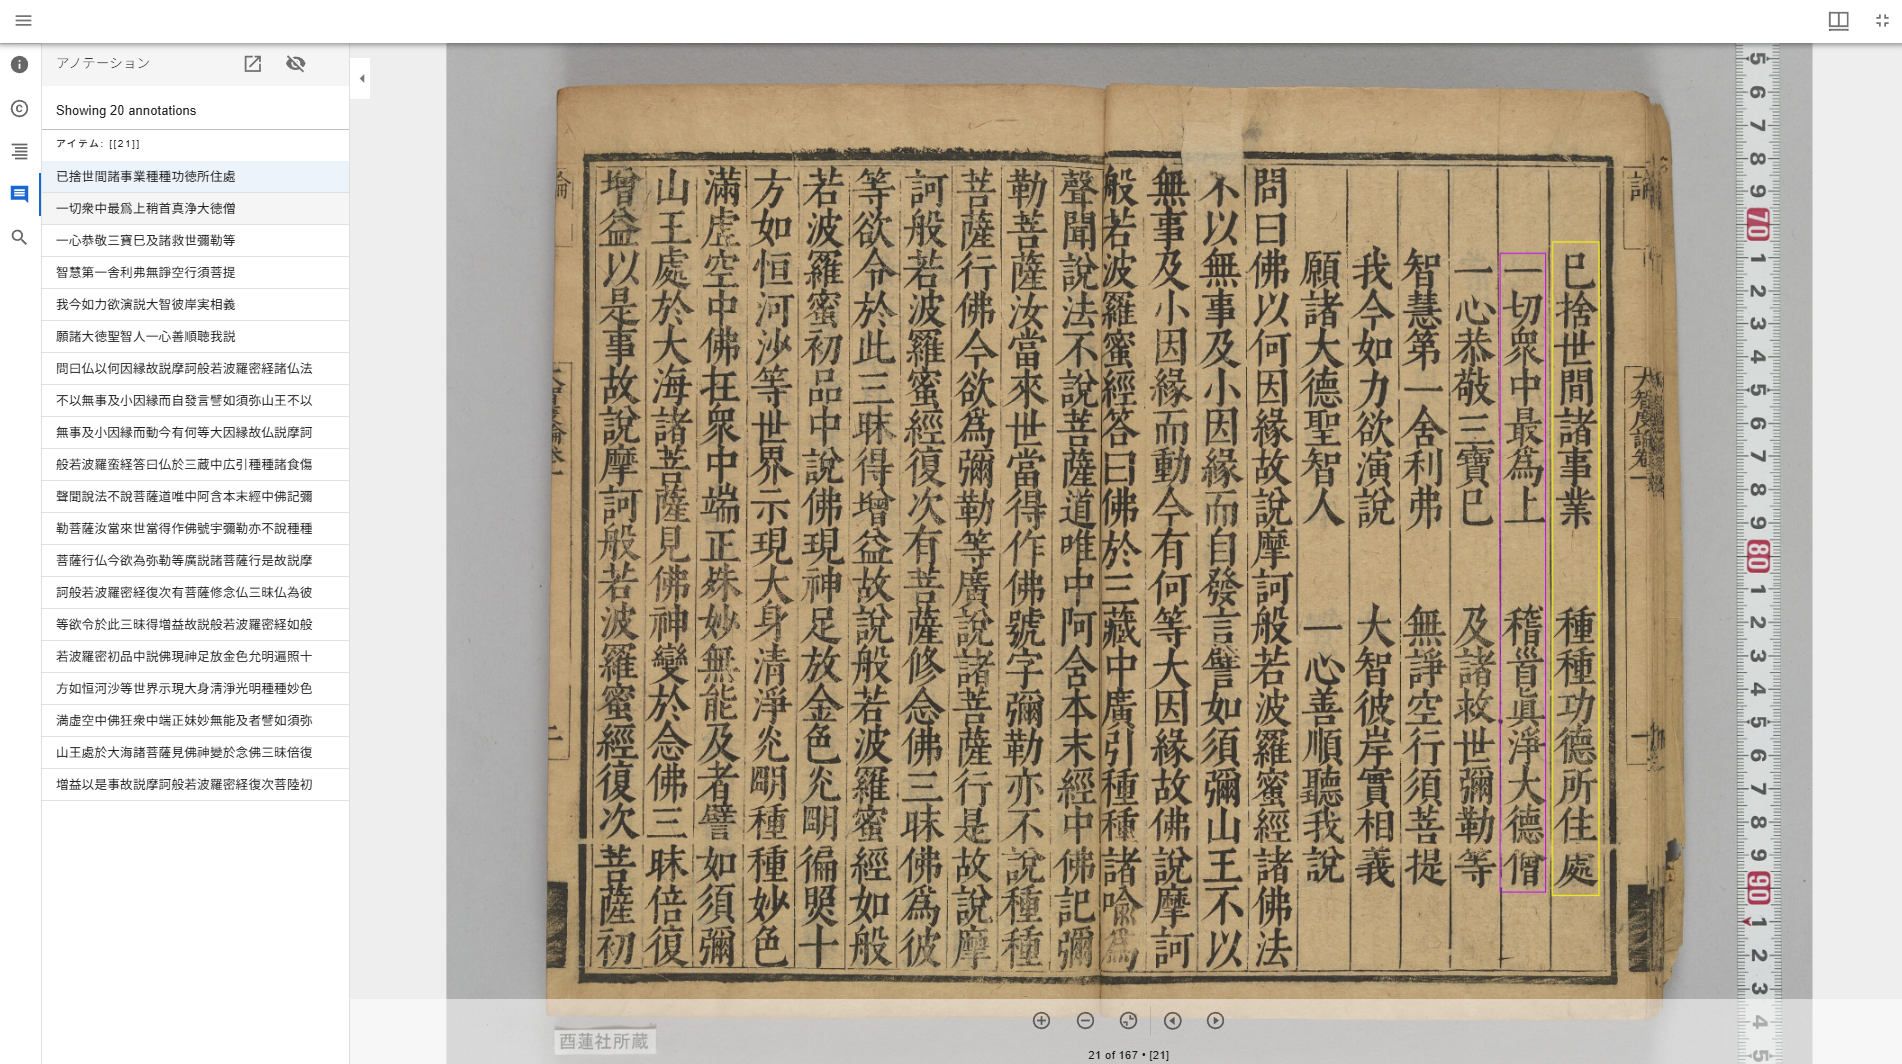 アノテーション
Showing 20 annotations
アイテム: [[21]]
已捨世間諸事業種種功徳所住處
一切衆中最爲上稍首真浄大徳僧
一心恭敬三寶巳及諸救世彌勒等
智慧第一舎利弗無諍空行須菩提
我今如力欲演説大智彼岸実相義
願諸大徳聖智人一心善順聴我説
問曰仏以何因縁故説摩訶般若波羅密経諸仏法
不以無事及小因縁而自發言譬如須弥山王不以
無事及小因縁而動今有何等大因縁故仏説摩訶
般若波羅蛮経答曰仏於三蔵中広引種種諸食傷
聲聞說法不說菩薩道唯中阿含本末經中佛記彌
勒菩薩汝當來世當得作佛號宇彌勒亦不說種種
菩薩行仏今欲為弥勒等廣説諸菩薩行是故説摩
訶般若波羅密経復次有菩薩修念仏三昧仏為彼
等欲令於此三昧得増益故説般若波羅密経如般
若波羅密初品中説佛現神足放金色允明遍照十
方如恒河沙等世界示現大身淸淨光明種種妙色
満虚空中佛狂衆中端正妹妙無能及者譬如須弥
山王處於大海諸菩薩見佛神變於念佛三昧倍復
増益以是事故説摩訶般若波羅密経復次菩陸初
論
大智度論卷一
一
已捨世間諸事業 種種功德所住處
一切衆中最爲上 稽首眞淨大德僧
一心恭敬三寶已 及諸救世彌勒等
智慧第一舍利弗 無諍空行須菩提
我今如力欲演說 大智彼岸實相義
願諸大德聖智人 一心善順聽我說
問曰佛以何因緣故說摩訶般若波羅蜜經諸佛法
不以無事及小因緣而自發言譬如須彌山王不以
無事及小因緣而動今有何等大因緣故佛說摩訶
般若波羅蜜經答曰佛於三藏中廣引種種諸喻爲
聲聞說法不說菩薩道唯中阿含本末經中佛記彌
勒菩薩汝當來世當得作佛號字彌勒亦不說種種
菩薩行佛今欲爲彌勒等廣說諸菩薩行是故說摩
訶般若波羅蜜經復次有菩薩修念佛三昧佛爲彼
等欲令於此三昧得增益故說般若波羅蜜經如般
若波羅蜜初品中說佛現神足放金色光朙徧照十
方如恒河沙等世界示現大身清淨光朙種種妙色
滿虛空中佛在衆中端正殊妙無能及者譬如須彌
山王處於大海諸菩薩見佛神變於念佛三昧倍復
增益以是事故說摩訶般若波羅蜜經復次菩薩初
5
6
7
8
9
70
1
2
3
4
5
6
7
8
9
80
1
2
3
4
5
6
7
8
9
90
1
2
3
4
5
酉蓮社所蔵
21 of 167 • [21]